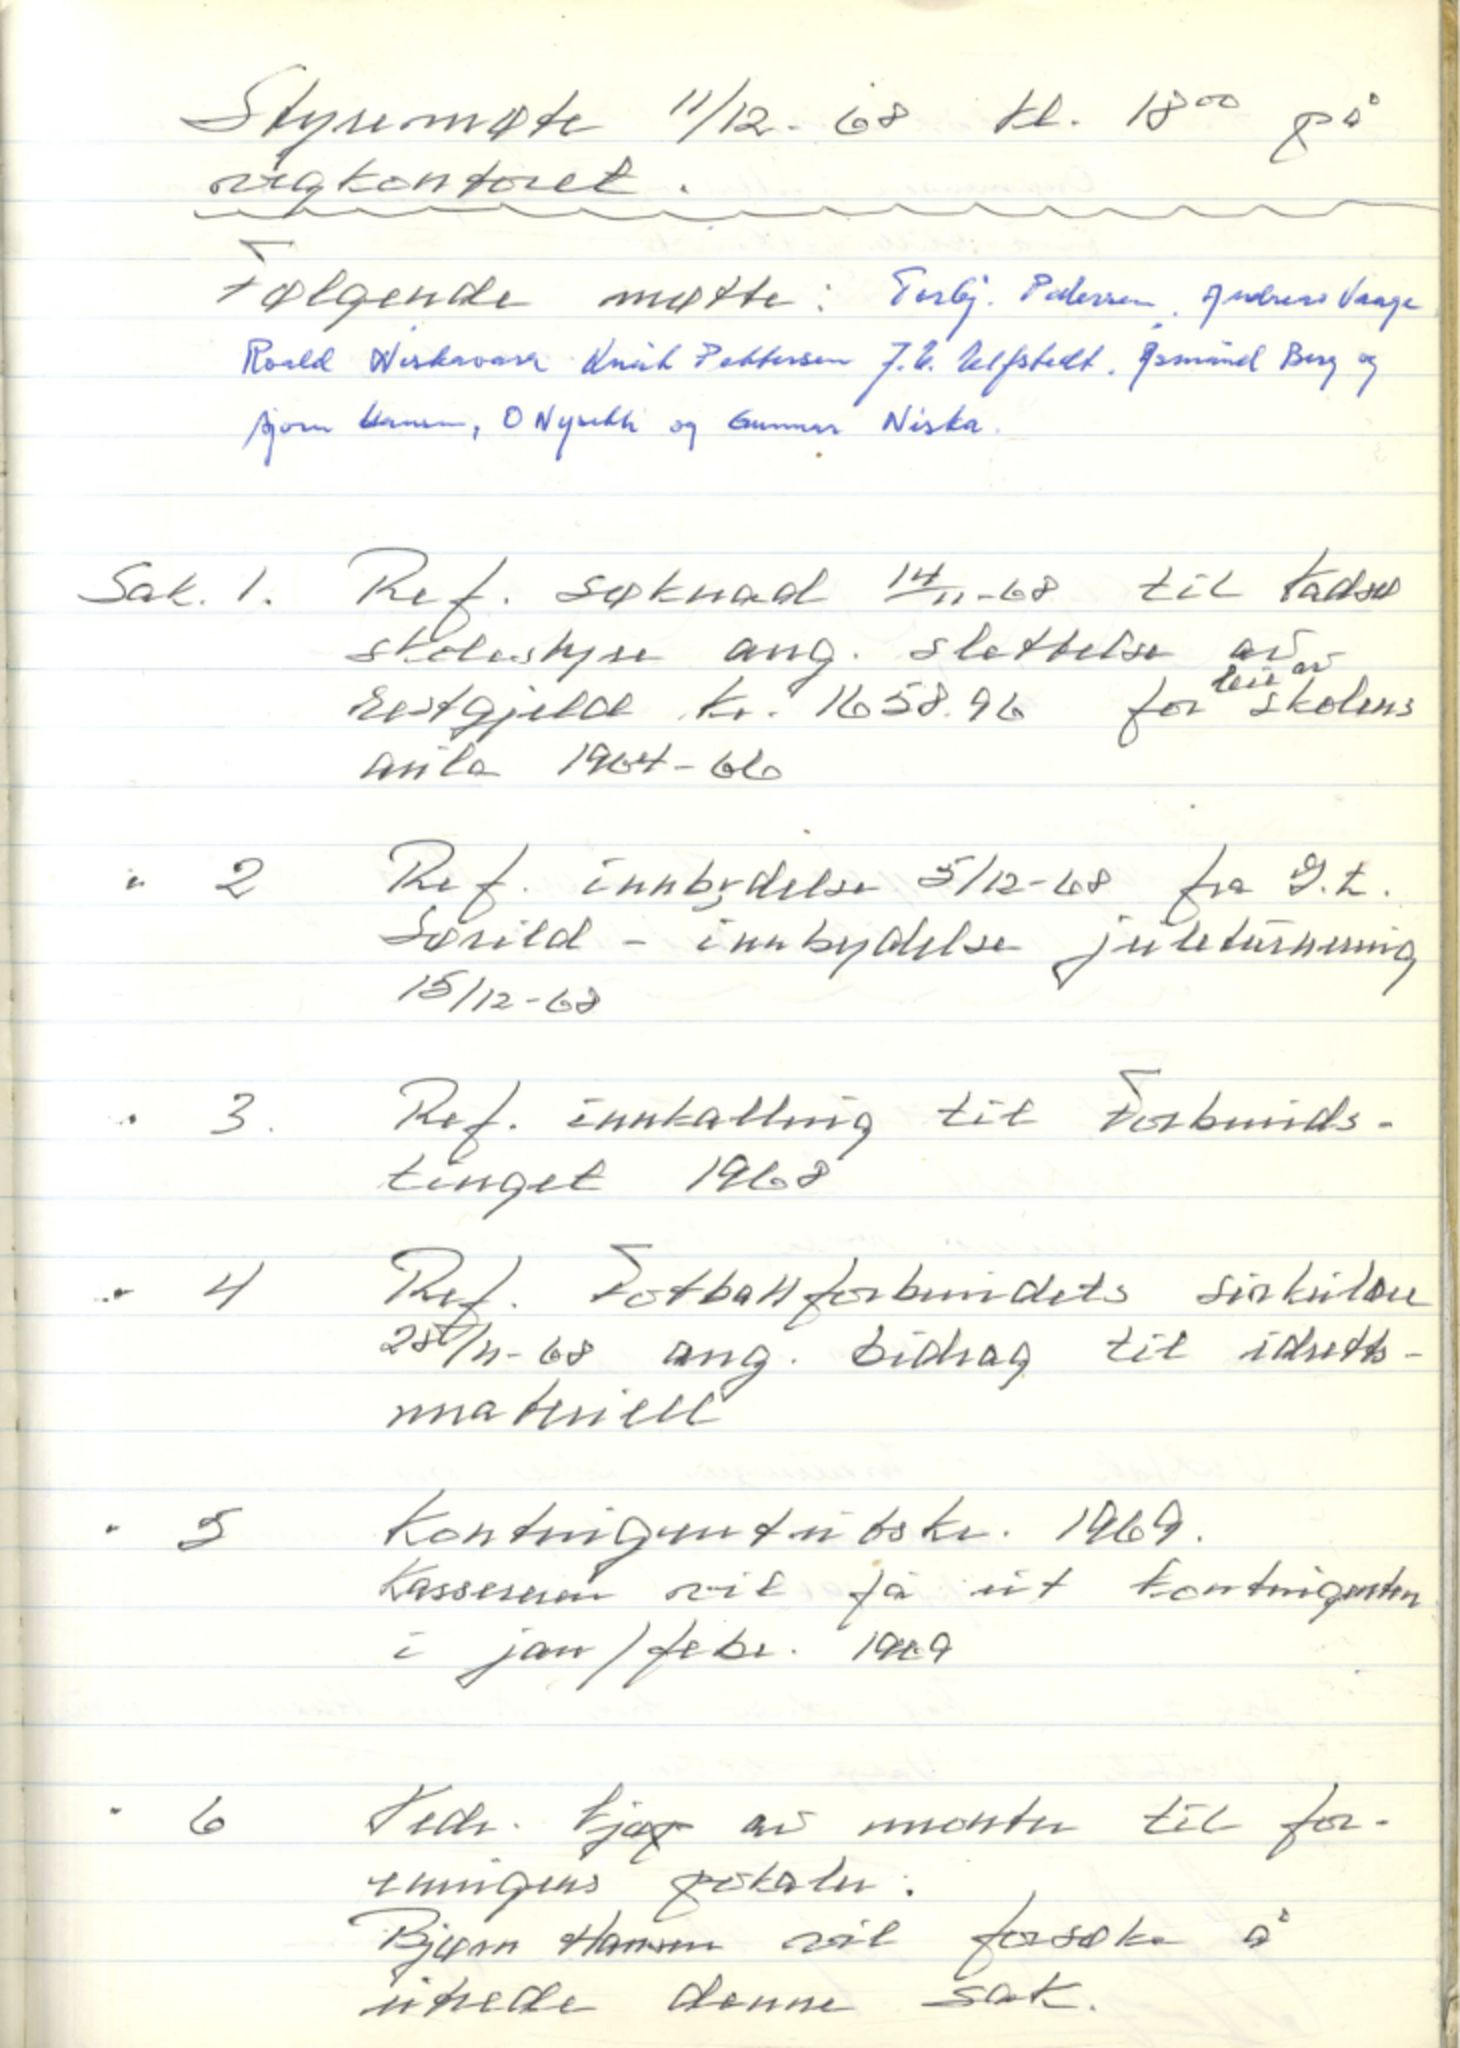 Styremøte 11/12-68 kl. 18⁰⁰ på
vegkontoret.
Følgende møtte: Torbj. Pedersen, Andreas Vaage
Roald Niskavaara Knut Pettersen J.E. Ulfstedt. Åsmund Berg og
Bjørn Hansen, O Nyseth og Gunnar Niska.
Sak. 1. Ref. søknad 14/11-68 til Vadsø
skolestyre ang. slettelse av
restgjeld kr. 1658.96 for leie av skolens
aula 1964-66
" 2 Ref. innbydelse 5/12-68 fra I.L.
Sørild - innbydelse juleturnering
15/12-68
" 3. Ref. innkalling til Forbunds-
tinget 1968
" 4 Ref. Fotballforbundets sirkulære
28/11-68 ang. bidrag til idretts-
materiell
" 5 Kontingentutskr. 1969.
Kassereren vil få ut kontingenten
i jan/febr. 1969
" 6 Vedr. kjøp av monter til for-
eningens pokaler.
Bjørn Hansen vil forsøke å
utrede denne sak.